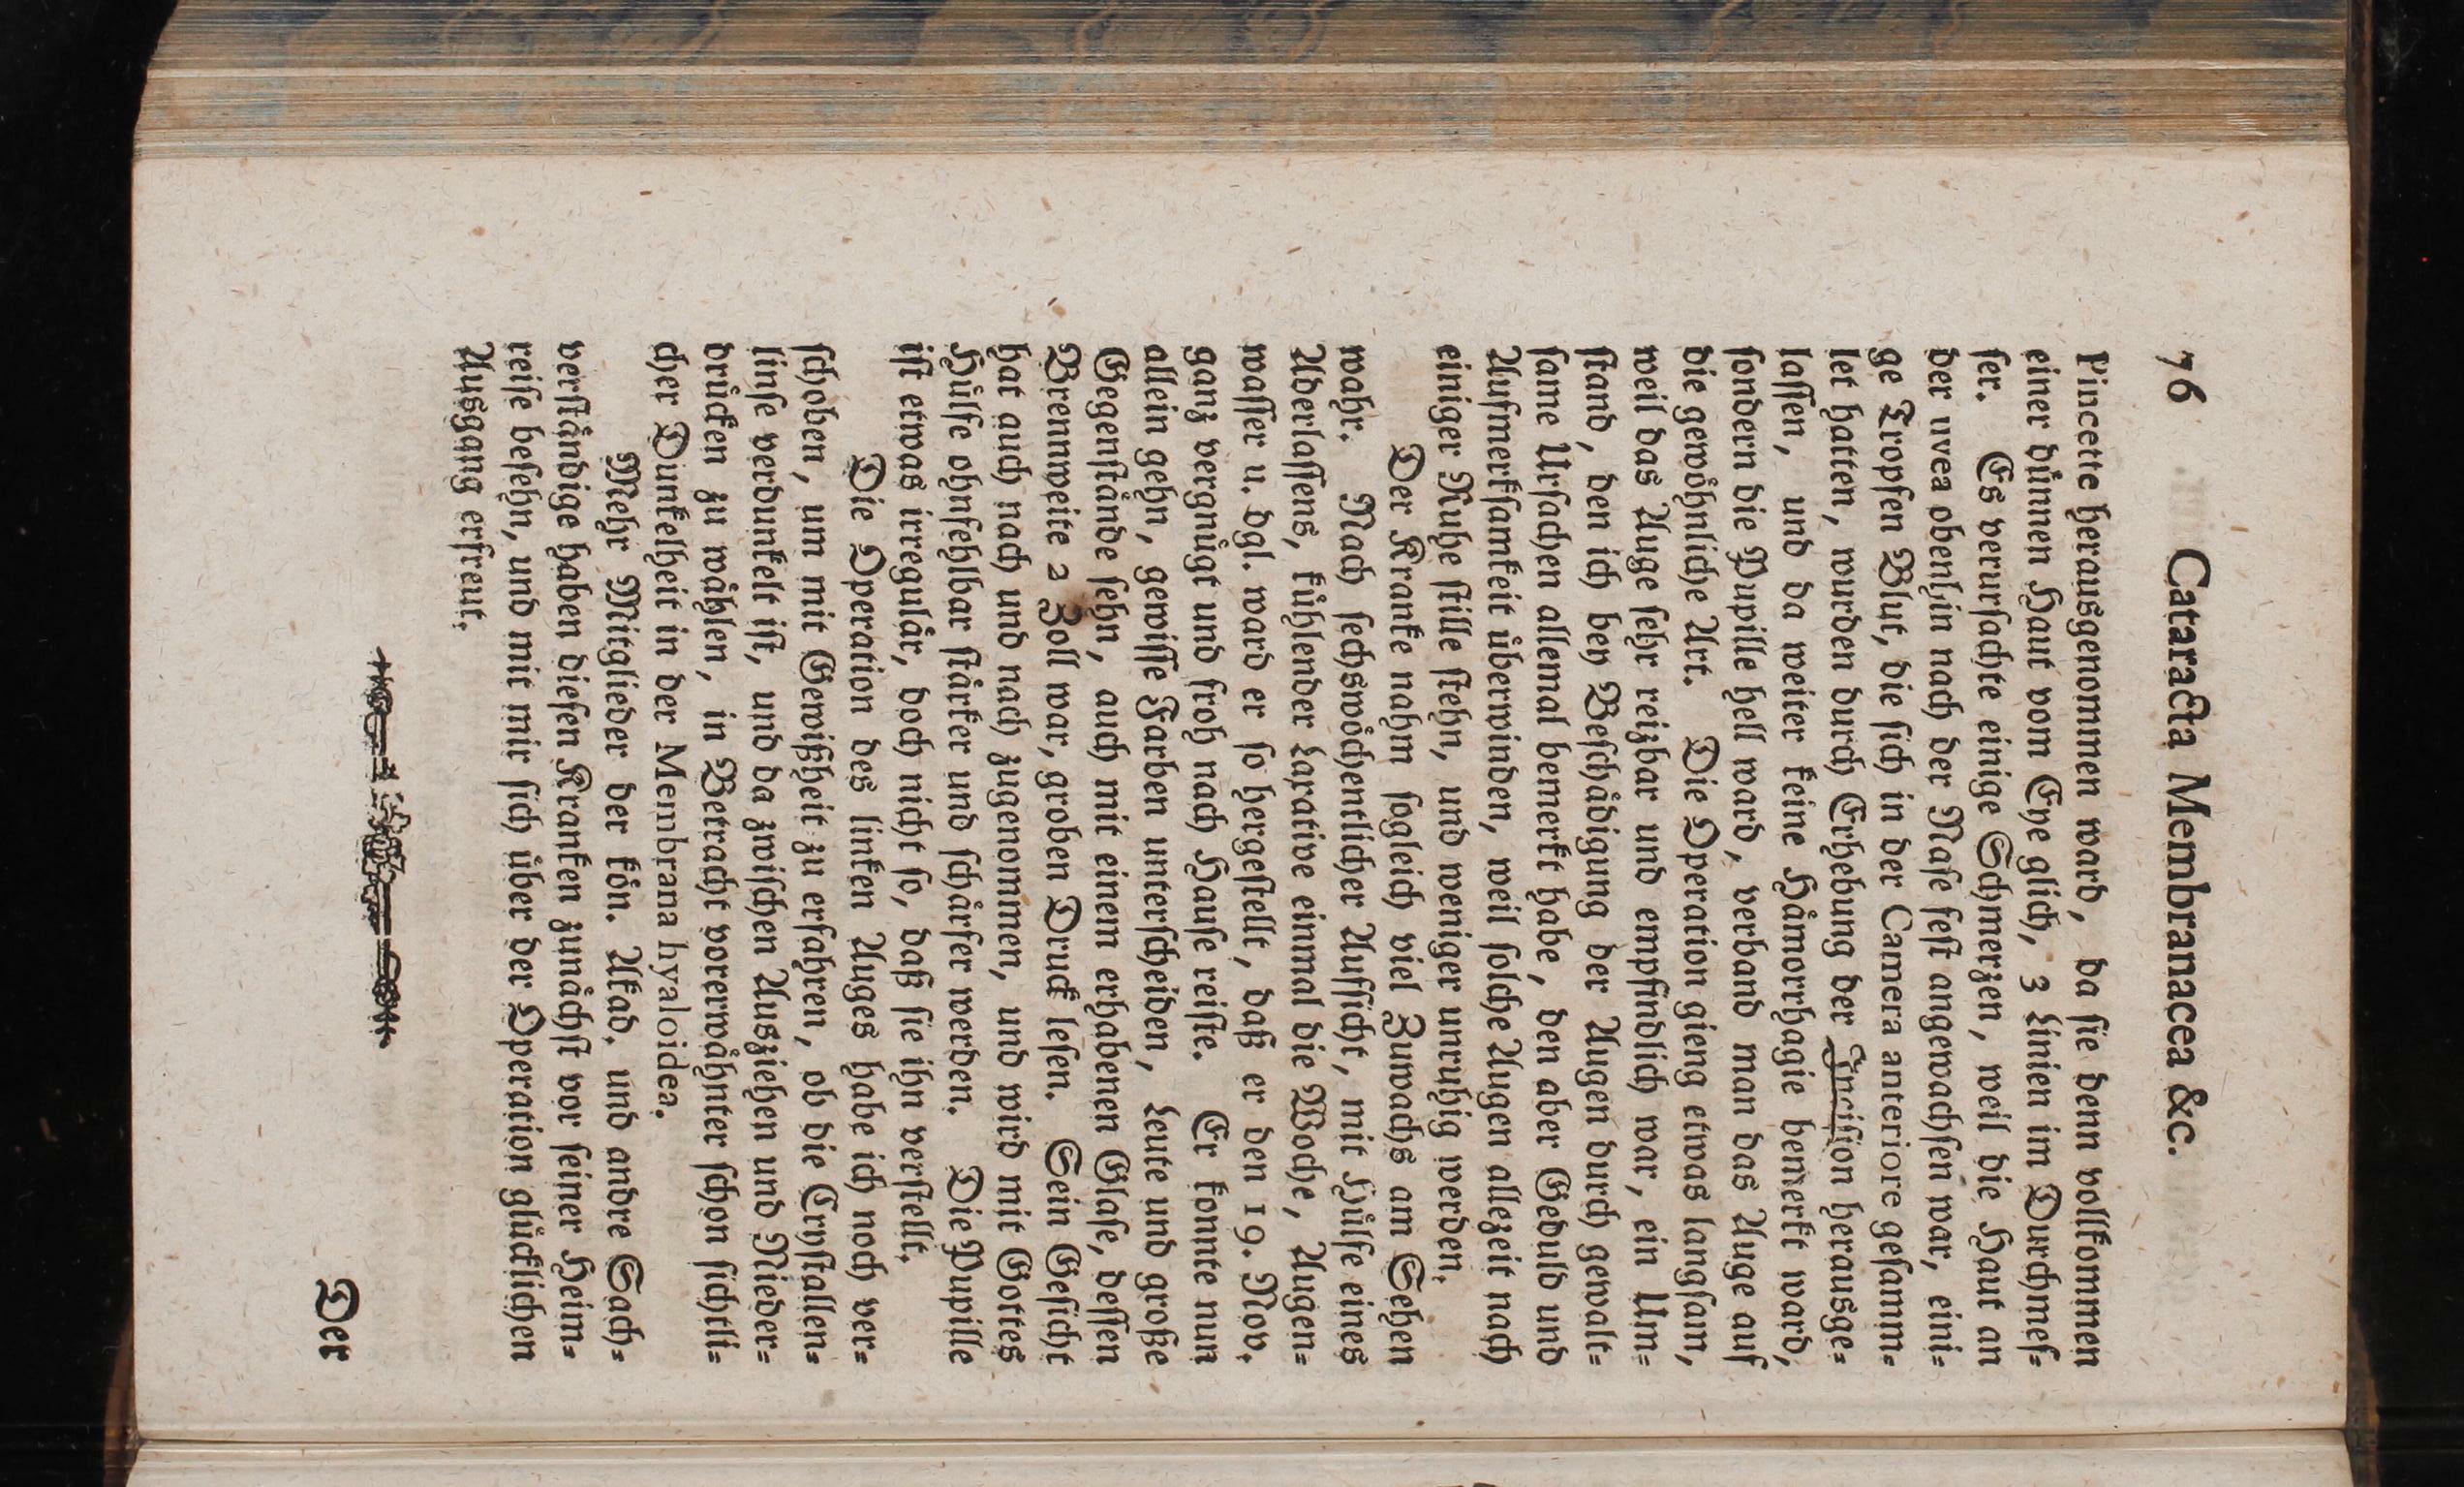 76 Cataracta Membranacea &c.
Pincette herausgenommen ward, da ſie denn vollkommen
einer důnnen Haut vom Eye glich, 3 Linien im Durchmeſ⸗
ſer. Es verurſachte einige Schmerzen, weil die Haut an
der uvea obenhin nach der Naſe feſt angewachſen war, eini⸗
ge Tropfen Blut, die ſich in der Camera anteriore geſamm⸗
let hatten, wurden durch Erhebung der Inciſion herausge⸗
laſſen, und da weiter keine Håmorrhagie bemerkt ward,
ſondern die Pupille hell ward, verband man das Auge auf
die gewöhnliche Art. Die Operation gieng etwas langſam,
weil das Auge ſehr reizbar und empfindlich war, ein Um⸗
ſtand, den ich bey Beſchådigung der Augen durch gewalt⸗
ſame Urſachen allemal bemerkt habe, den aber Geduld und
Aufmerkſamkeit überwinden, weil ſolche Augen allezeit nach
einiger Ruhe ſtille ſtehn, und weniger unruhig werden.
Der Kranke nahm ſogleich viel Zuwachs am Sehen
wahr. Nach ſechswöchentlicher Aufſicht, mit Hůlfe eines
Aderlaſſens, kůhlender Laxative einmal die Woche, Augen⸗
waſſer u. dgl. ward er ſo hergeſtellt, daß er den 19. Nov.
ganz vergnůgt und froh nach Hauſe reiſte. Er konnte nun
allein gehn, gewiſſe Farben unterſcheiden, Leute und große
Gegenſtånde ſehn, auch mit einem erhabenen Glaſe, deſſen
Brennweite 2 Zoll war, groben Druck leſen. Sein Geſicht
hat auch nach und nach zugenommen, und wird mit Gottes
Hůlfe ohnfehlbar ſtårker und ſchårfer werden. Die Pupille
iſt etwas irregulår, doch nicht ſo, daß ſie ihn verſtellt.
Die Operation des linken Auges habe ich noch ver⸗
ſchoben, um mit Gewißheit zu erfahren, ob die Cryſtallen⸗
linſe verdunkelt iſt, und da zwiſchen Ausziehen und Nieder⸗
drůcken zu wåhlen, in Betracht vorerwåhnter ſchon ſichtli⸗
cher Dunkelheit in der Membrana hyaloidea.
Mehr Mitglieder der kön. Akad. und andre Sach⸗
verſtåndige haben dieſen Kranken zunåchſt vor ſeiner Heim⸗
reiſe beſehn, und mit mir ſich über der Operation glůcklichen
Ausgang erfreut.
Der